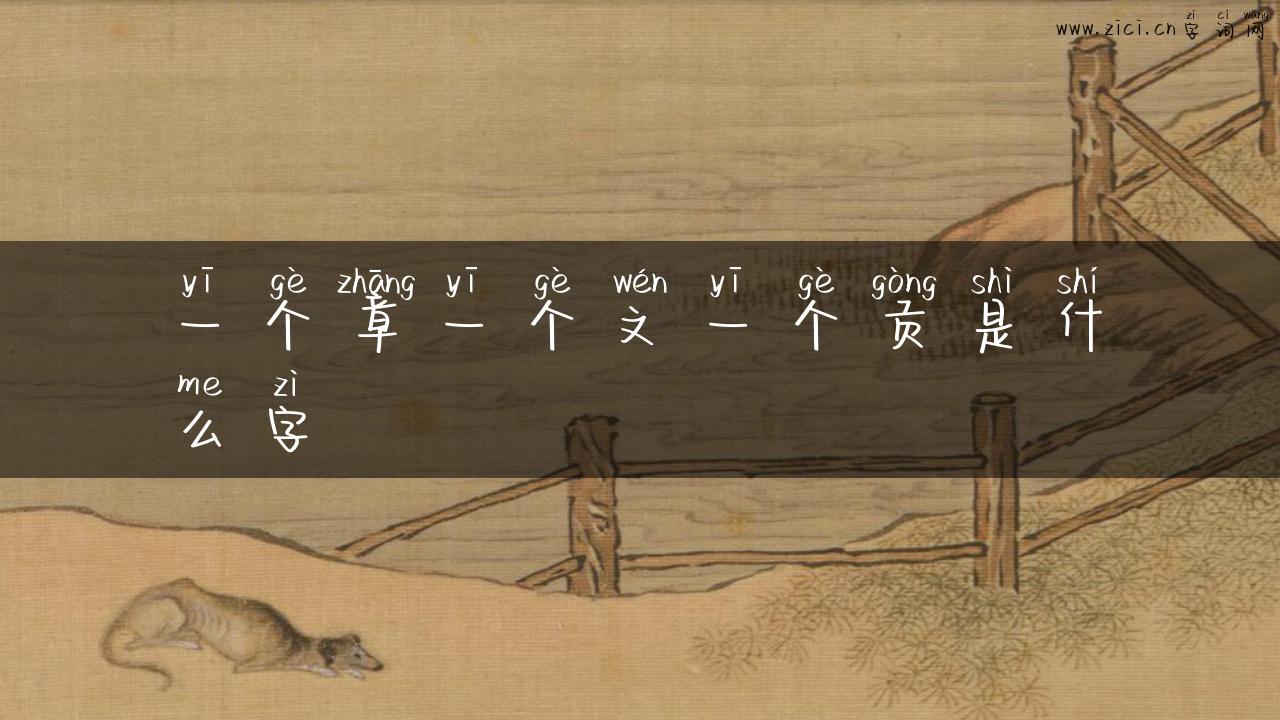 zì cí wǎng
www.zici.cn 字词网
yī gè zhāng yī gè wén yī gè gòng shì shí
一个章一个文一个贡是什
me zì
么字